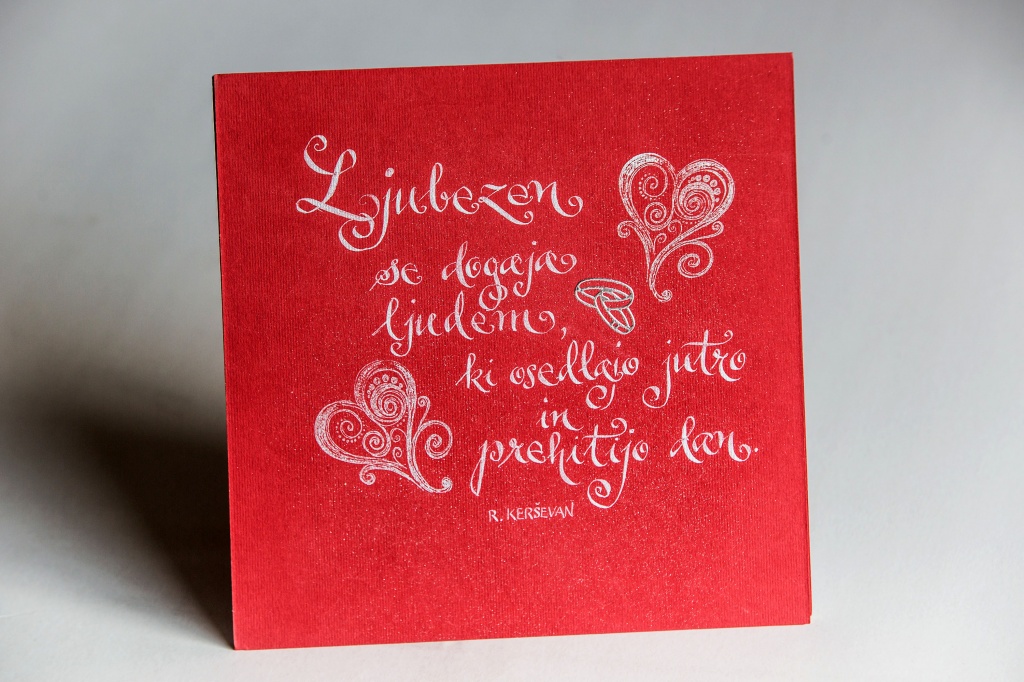 Ljubezen
se dogaja
ljudem,
ki osedlajo jutro
in
prehitijo dan.
R. KERŠEVAN